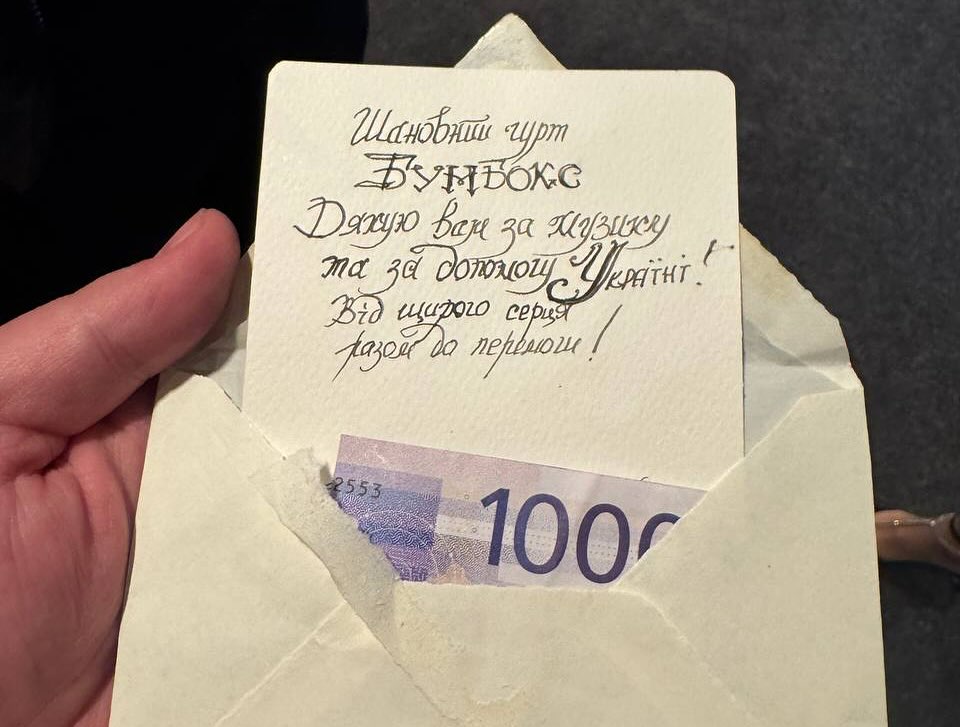 Шановний гурт
БУМБОКС
Дякую вам за музику
та за допомогу Україні!
Від щирого серця
разом до перемоги!
2553
1000